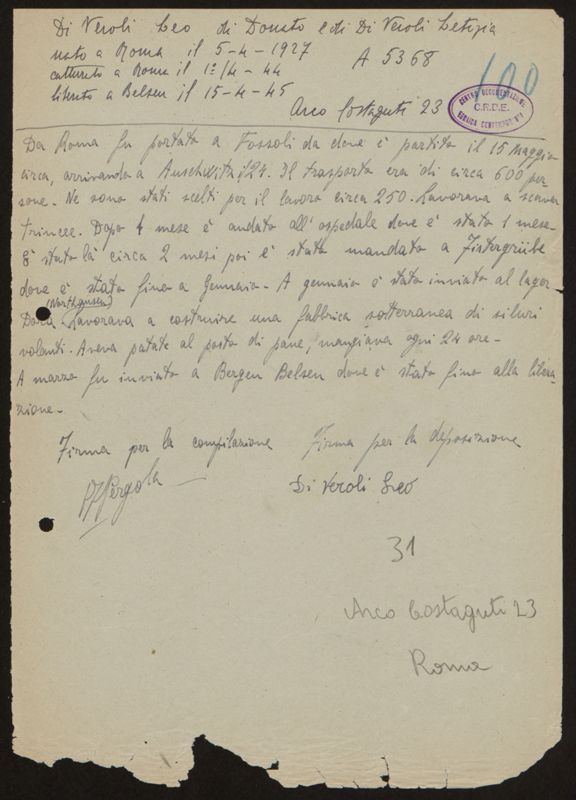 Di Veroli Leo di Donato e di Di Veroli Letizia
nato a Roma il 5-4-1927 A 5368
catturato a Roma il 1°/4-44 100
liberato a Belsen il 15-4-45
CENTRO DOCUMENTAZIONE
C.R.D.E.
EBRAICA CONTEMPORANEA
Arco Costaguti 23
Da Roma fu portato a Fossoli da dove è partito il 15 Maggio
circa, arrivando a Auschwitz il 24. Il trasporto era di circa 600 per-
sone. Ne sono stati scelti per il lavoro circa 250. Lavorava a scavar
trincee. Dopo 1 mese è andato all'ospedale dove è stato 1 mese.
È stato là circa 2 mesi poi è stato mandato a Fistergrübe
dove è stato fino a Gennaio. A gennaio è stato inviato al lager
(Northausen)
Dora. Lavorava a costruire una fabbrica sotterranea di siluri
volanti. Aveva patate al posto di pane, mangiava ogni 24 ore.
A marzo fu inviato a Bergen Belsen dove è stato fino alla libera-
zione.
Firma per la compilazione Firma per la deposizione
Pergola Di Veroli Leo
31
Arco Costaguti 23
Roma